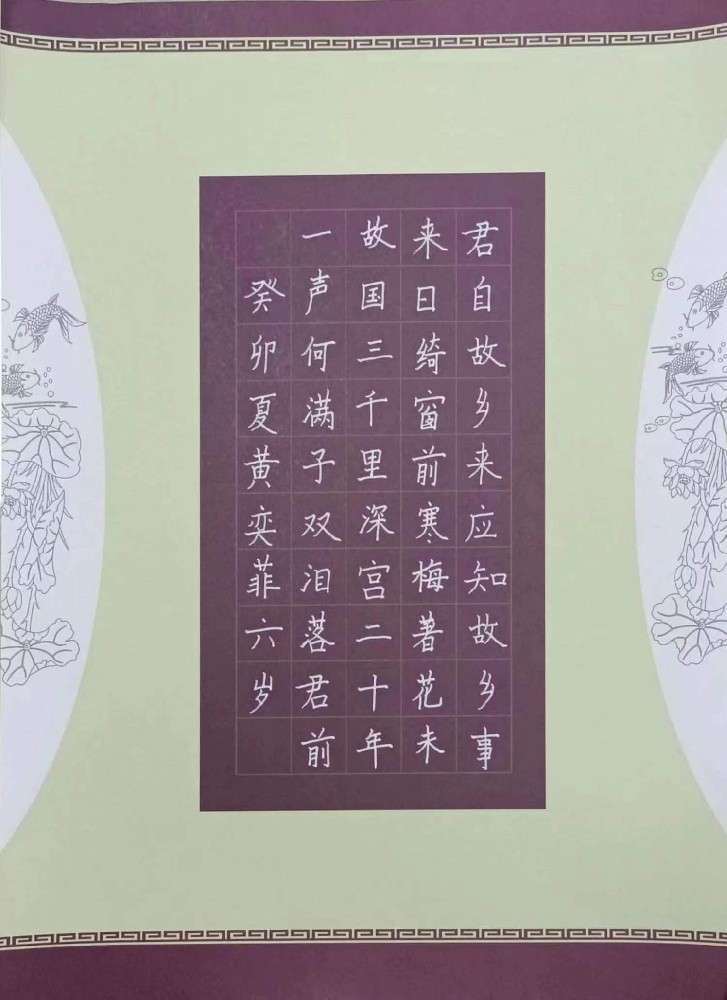 君自故乡来应知故乡事
来日绮窗前寒梅著花未
故国三千里深宫二十年
一声何满子双泪落君前
癸卯夏黄奕菲六岁